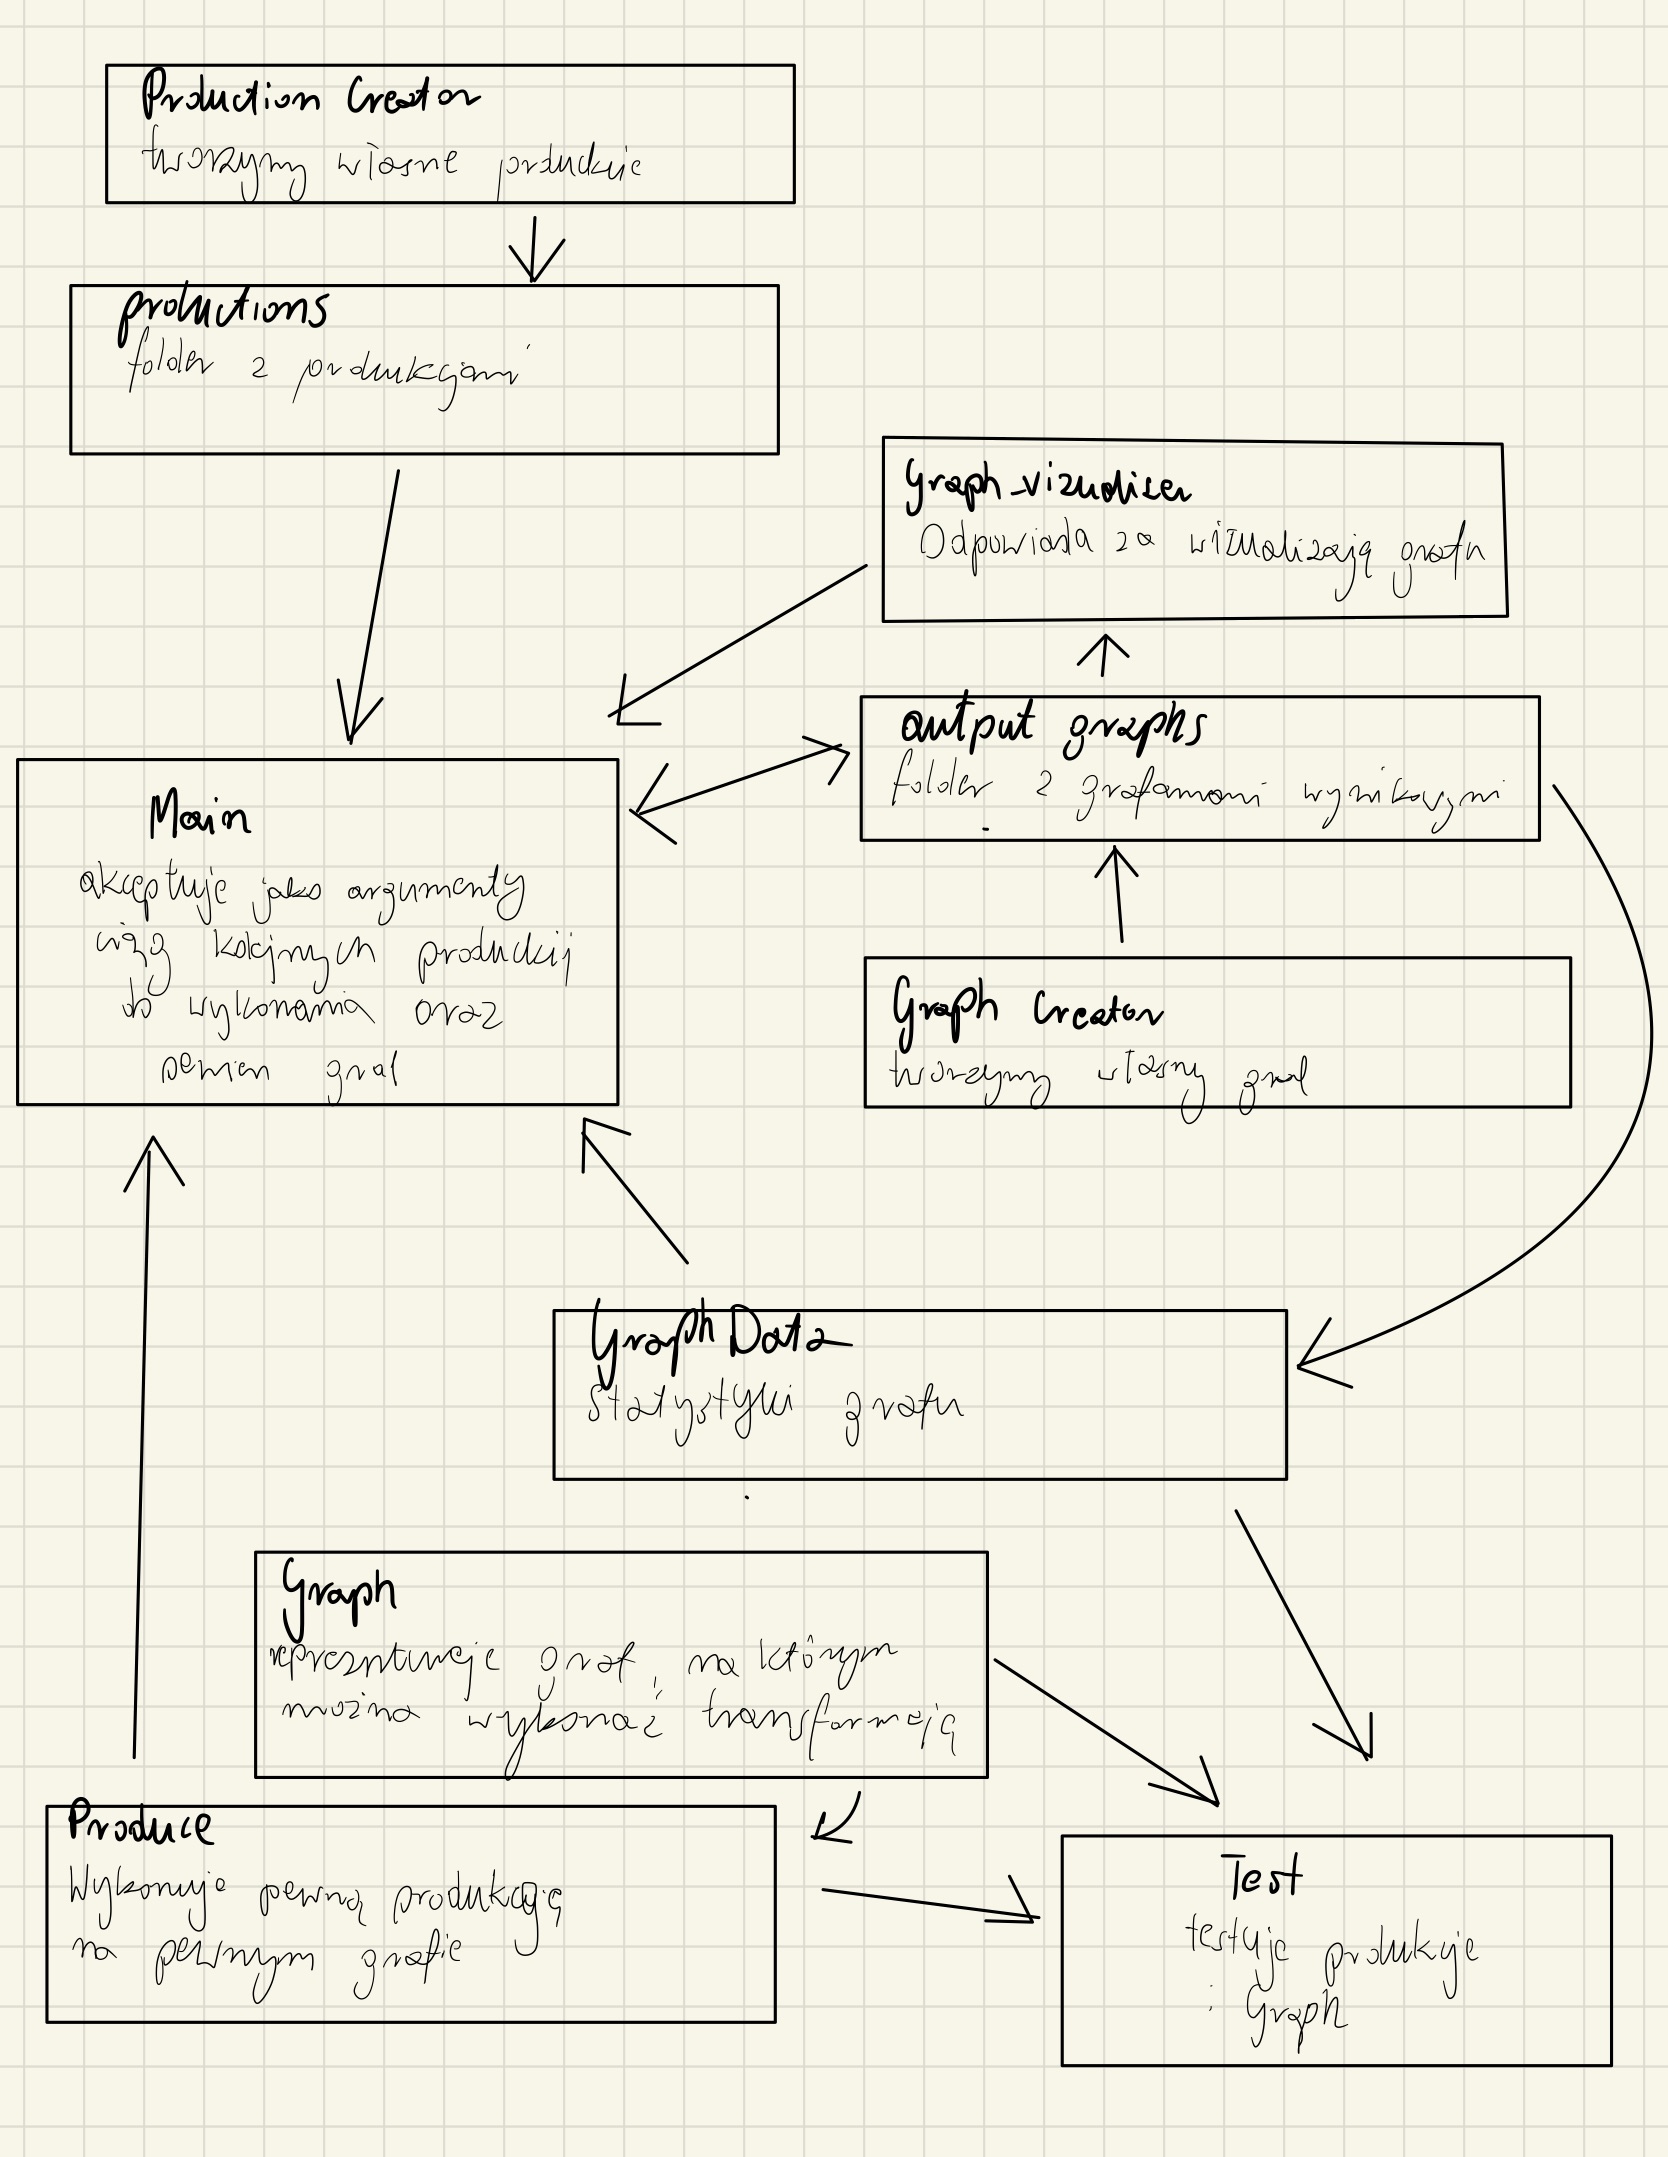 Production Creator
tworzymy własne produkcje
productions
folder z produkcjami
Graph_vizualiser
Odpowiada za wizualizają grafu
output graphs
folder z grafamami wynikowymi
Main
akceptuje jako argumenty
ciąg kolejnych produkcji
do wykonania oraz
pewien graf
Graph Creator
tworzymy własny graf
Graph Data
Statystyki grafu
Graph
reprezntuje graf, na którym
można wykonać transformają
Produce
Wykonuje pewną produkcję
na pewnym grafie
Test
testuje produkje
i Graph